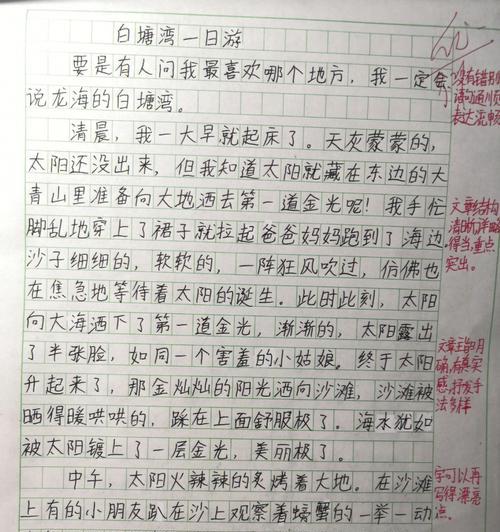 白塘湾一日游
要是有人问我最喜欢哪个地方，我一定会
说龙海的白塘湾。
清晨，我一大早就起床了。天灰蒙蒙的，
太阳还没出来，但我知道太阳就藏在东边的大
青山里准备向大地洒去第一道金光呢！我手忙
脚乱地穿上了裙子就拉起爸爸妈妈跑到了海边。
沙子细细的，软软的，一阵狂风吹过，仿佛也
在焦急地等待着太阳的诞生。此时此刻，太阳
向大海洒下了第一道金光，渐渐的，太阳露出
了半张脸，如同一个害羞的小姑娘。终于太阳
升起来了，那金灿灿的阳光洒向沙滩，沙滩被
晒得暖哄哄的，踩在上面舒服极了。海水犹如
被太阳镀上了一层金光，美丽极了。
中午，太阳火辣辣的炙烤着大地。在沙滩
上有的小朋友趴在沙上观察着螃蟹的一举一动
没有错别
语句通顺
表达流畅
文章结构
清晰，详略
得当，重点
突出。
文章主题明
确，有真实
感，抒发手
法多样
字可以再
写得漂亮
点。